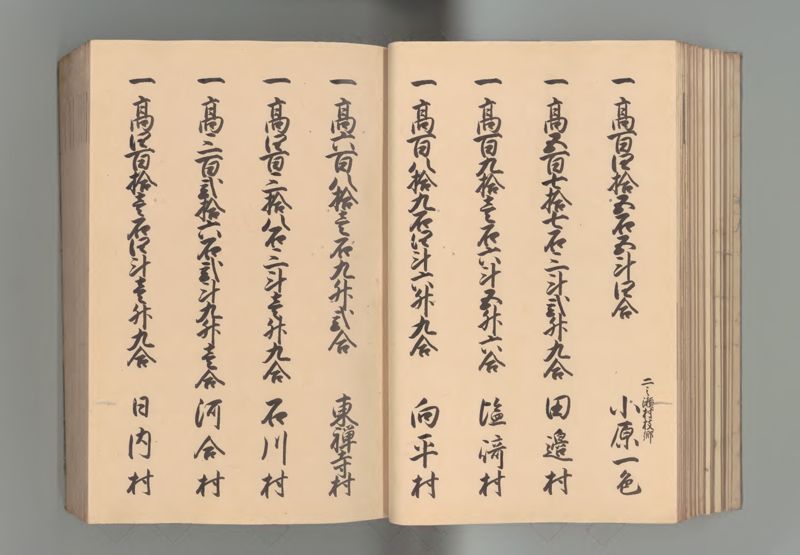 一 高百四拾五石五斗四合
二之瀬村枝郷
小原一色
一 高五百七拾七石三斗弐升九合 田邉村
一 高百九拾壱石六斗五升六合 塩﨑村
一 高百八拾九石四斗六升九合 向平村
一 高六百八拾壱石九升弐合 東禅寺村
一 高四百三拾八石三斗壱升九合 石川村
一 高三百弐拾六石弐斗九升壱合 河合村
一 高四百拾壱石四斗壱升九合 日内村